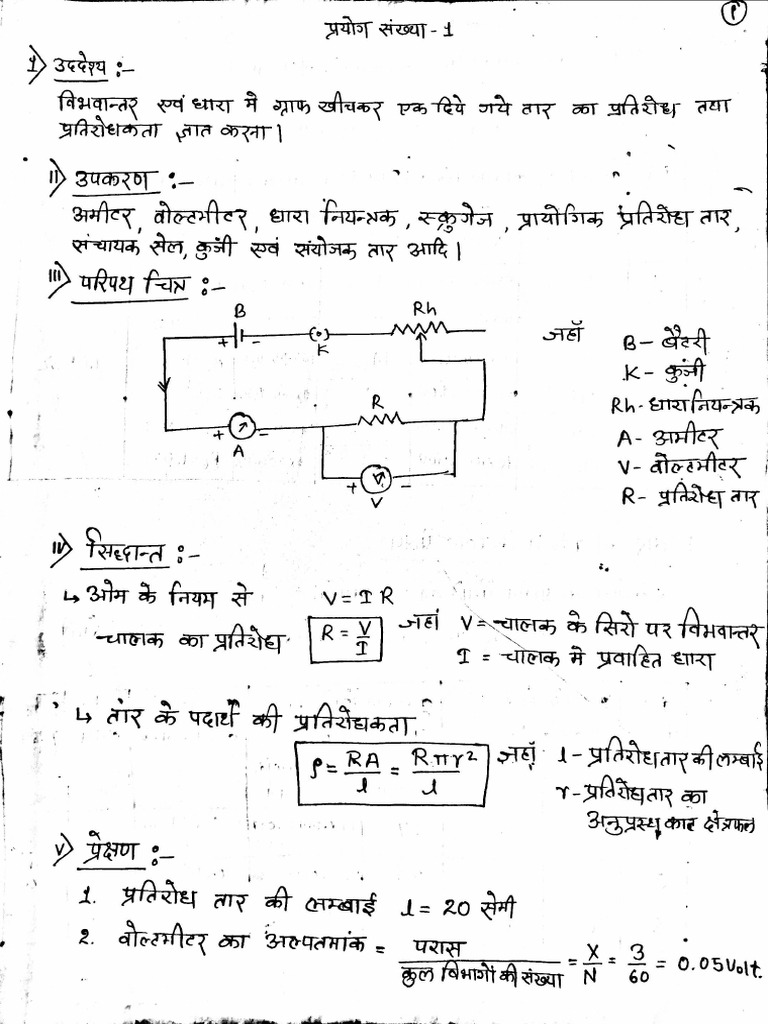 1
प्रयोग संख्या - 1
I) उददेश्य :-
विभवान्तर एवं धारा मे ग्राफ खीचकर एक दिये गये तार का प्रतिरोध तथा
प्रतिरोधकता ज्ञात करना।
II) उपकरण :-
अमीटर, वोल्टमीटर, धारा नियन्त्रक, स्क्रुगेज, प्रायोगिक प्रतिरोध तार,
संचायक सेल, कुंजी एवं संयोजक तार आदि।
III) परिपथ चित्र :-
B
+ -
K
Rh
R
+ -
A
+ -
V
जहाँ
B - बैटरी
K - कुंजी
Rh - धारा नियन्त्रक
A - अमीटर
V - वोल्टमीटर
R - प्रतिरोध तार
IV) सिद्धान्त :-
↳ ओम के नियम से V = I R
चालक का प्रतिरोध R = V/I जहां V = चालक के सिरो पर विभवान्तर
I = चालक मे प्रवाहित धारा
↳ तार के पदार्थ की प्रतिरोधकता
ρ = RA/l = Rπr²/l जहाँ l - प्रतिरोध तार की लम्बाई
r - प्रतिरोध तार का
अनुप्रस्थ काट क्षेत्रफल
V) प्रेक्षण :-
1. प्रतिरोध तार की लम्बाई l = 20 सेमी
2. वोल्टमीटर का अल्पतमांक = परास/कुल विभागों की संख्या = X/N = 3/60 = 0.05 Volt.